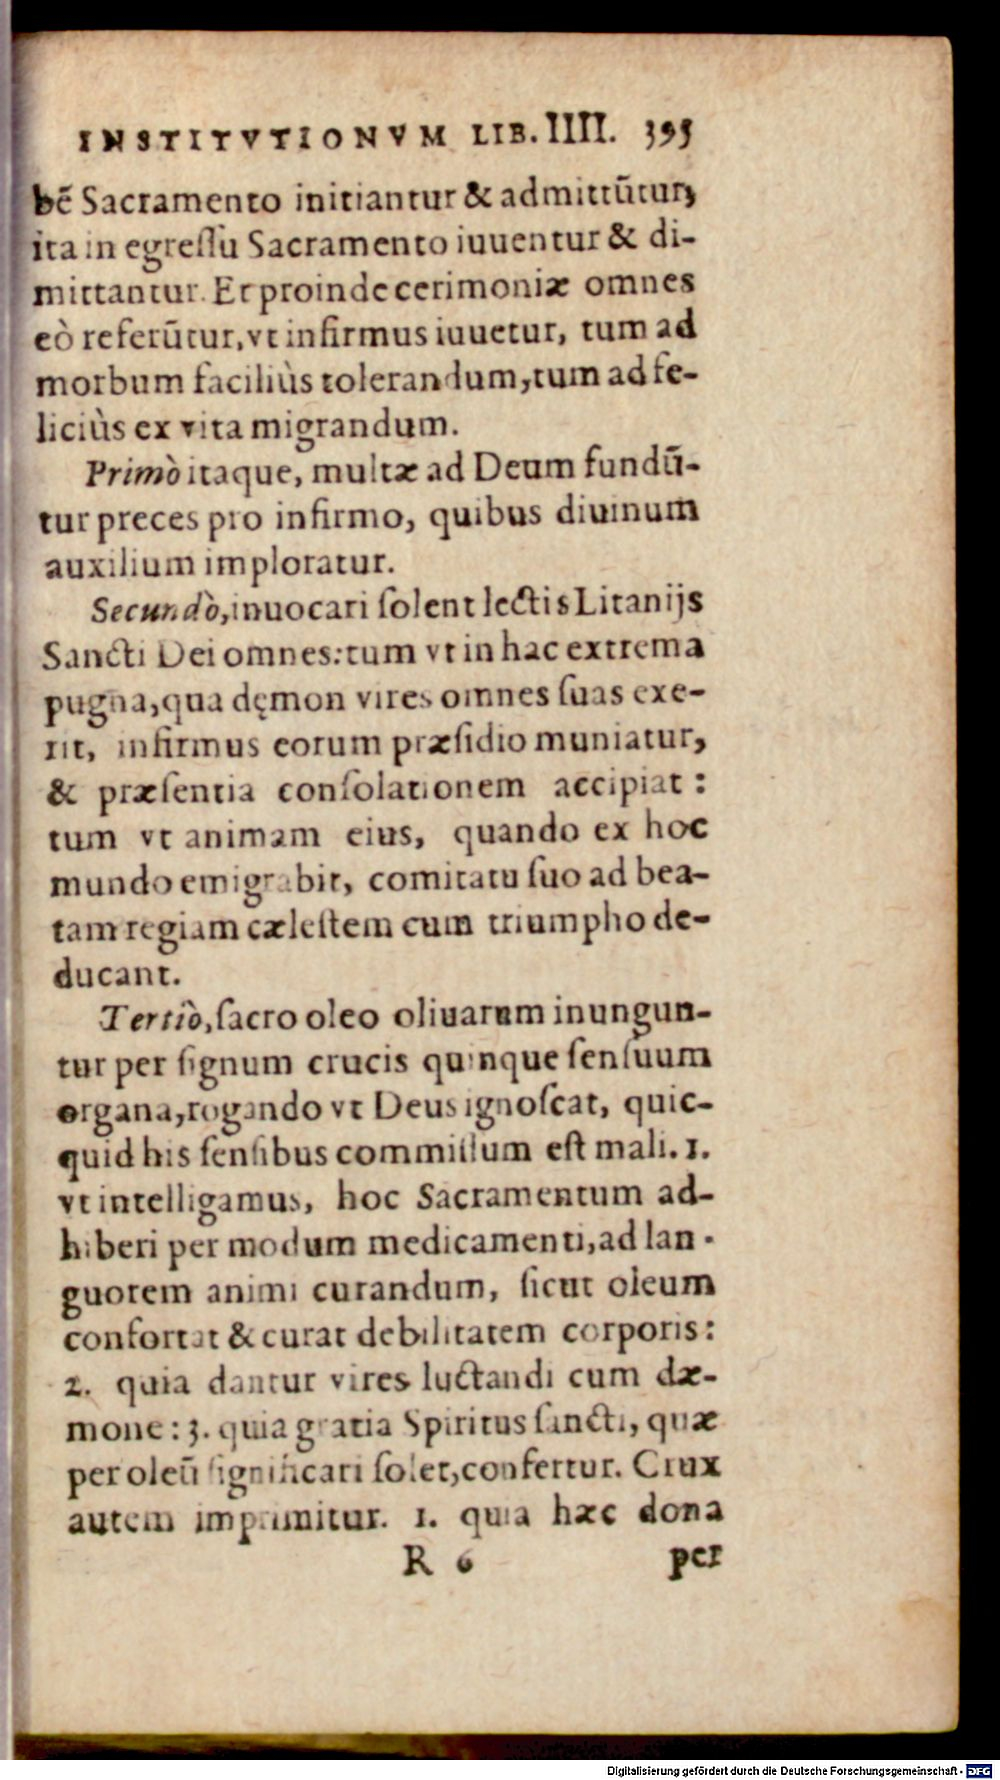 INSTITVTIONVM LIB. IIII. 395
bẽ Sacramento initiantur & admittũtur,
ita in egreſſu Sacramento iuuentur & di-
mittantur. Et proinde cerimoniæ omnes
eò referũtur, vt infirmus iuuetur, tum ad
morbum faciliùs tolerandum, tum ad fe-
liciùs ex vita migrandum.
Primò itaque, multæ ad Deum fundũ-
tur preces pro infirmo, quibus diuinum
auxilium imploratur.
Secundò, inuocari ſolent lectis Litanijs
Sancti Dei omnes: tum vt in hac extrema
pugna, qua dęmon vires omnes ſuas exe-
rit, infirmus eorum præſidio muniatur,
& præſentia conſolationem accipiat:
tum vt animam eius, quando ex hoc
mundo emigrabit, comitatu ſuo ad bea-
tam regiam cæleſtem cum triumpho de-
ducant.
Tertiò, ſacro oleo oliuarum inungun-
tur per ſignum crucis quinque ſenſuum
organa, rogando vt Deus ignoſcat, quic-
quid his ſenſibus commiſſum eſt mali. 1.
vt intelligamus, hoc Sacramentum ad-
hiberi per modum medicamenti, ad lan-
guorem animi curandum, ſicut oleum
confortat & curat debilitatem corporis:
2. quia dantur vires luctandi cum dæ-
mone: 3. quia gratia Spiritus ſancti, quæ
per oleũ ſignificari ſolet, confertur. Crux
autem imprimitur. 1. quia hæc dona
R 6 per
Digitalisierung gefördert durch die Deutsche Forschungsgemeinschaft - DFG